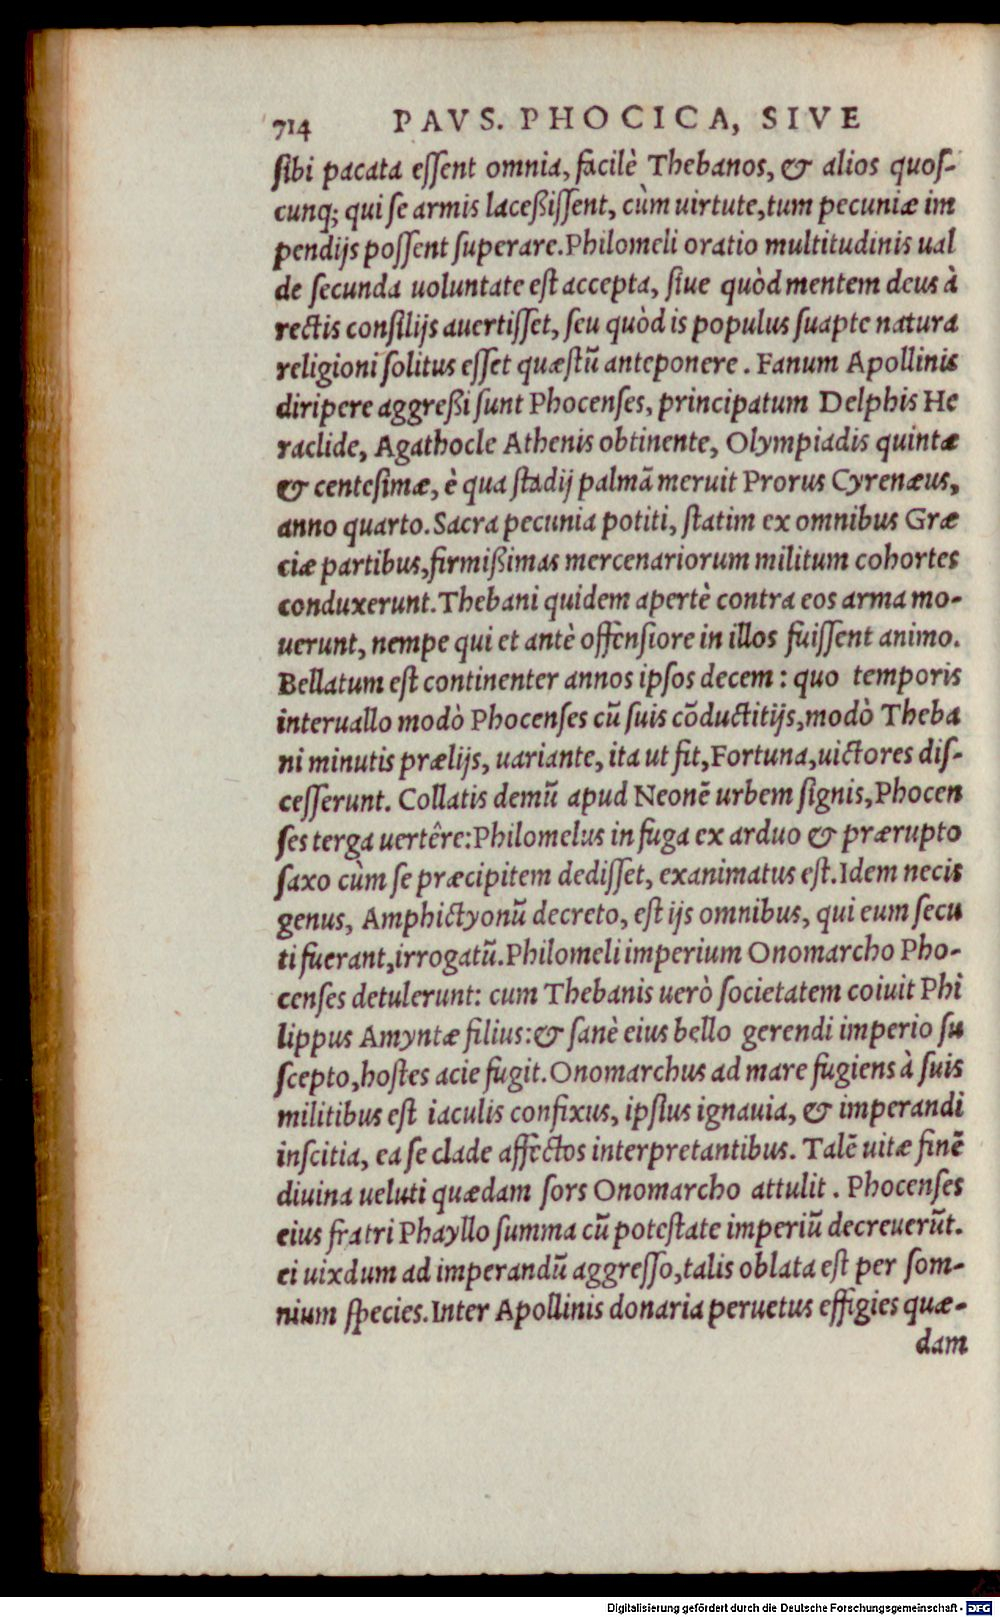 714 PAVS. PHOCICA, SIVE
ſibi pacata eſſent omnia, facilè Thebanos, & alios quoſ-
cunq; qui ſe armis laceßiſſent, cùm uirtute, tum pecuniæ im
pendijs poſſent ſuperare. Philomeli oratio multitudinis ual
de ſecunda uoluntate eſt accepta, ſiue quòd mentem deus à
rectis conſilijs auertiſſet, ſeu quòd is populus ſuapte natura
religioni ſolitus eſſet quæſtū anteponere. Fanum Apollinis
diripere aggreßi ſunt Phocenſes, principatum Delphis He
raclide, Agathocle Athenis obtinente, Olympiadis quintæ
& centeſimæ, è qua ſtadij palmā meruit Prorus Cyrenæus,
anno quarto. Sacra pecunia potiti, ſtatim ex omnibus Græ
ciæ partibus, firmißimas mercenariorum militum cohortes
conduxerunt. Thebani quidem apertè contra eos arma mo-
uerunt, nempe qui et antè offenſiore in illos fuiſſent animo.
Bellatum eſt continenter annos ipſos decem: quo temporis
interuallo modò Phocenſes cū ſuis cōductitijs, modò Theba
ni minutis prælijs, uariante, ita ut fit, Fortuna, uictores diſ-
ceſſerunt. Collatis demū apud Neonē urbem ſignis, Phocen
ſes terga uertêre: Philomelus in fuga ex arduo & prærupto
ſaxo cùm ſe præcipitem dediſſet, exanimatus eſt. Idem necis
genus, Amphictyonū decreto, eſt ijs omnibus, qui eum ſecu
ti fuerant, irrogatū. Philomeli imperium Onomarcho Pho-
cenſes detulerunt: cum Thebanis uerò ſocietatem coiuit Phi
lippus Amyntæ filius: & ſanè eius bello gerendi imperio ſu
ſcepto, hoſtes acie fugit. Onomarchus ad mare fugiens à ſuis
militibus eſt iaculis confixus, ipſius ignauia, & imperandi
inſcitia, ea ſe clade affectos interpretantibus. Talē uitæ finē
diuina ueluti quædam ſors Onomarcho attulit. Phocenſes
eius fratri Phayllo ſumma cū poteſtate imperiū decreuerūt.
ei uixdum ad imperandū aggreſſo, talis oblata eſt per ſom-
nium ſpecies. Inter Apollinis donaria peruetus effigies quæ-
dam
Digitalisierung gefördert durch die Deutsche Forschungsgemeinschaft - DFG